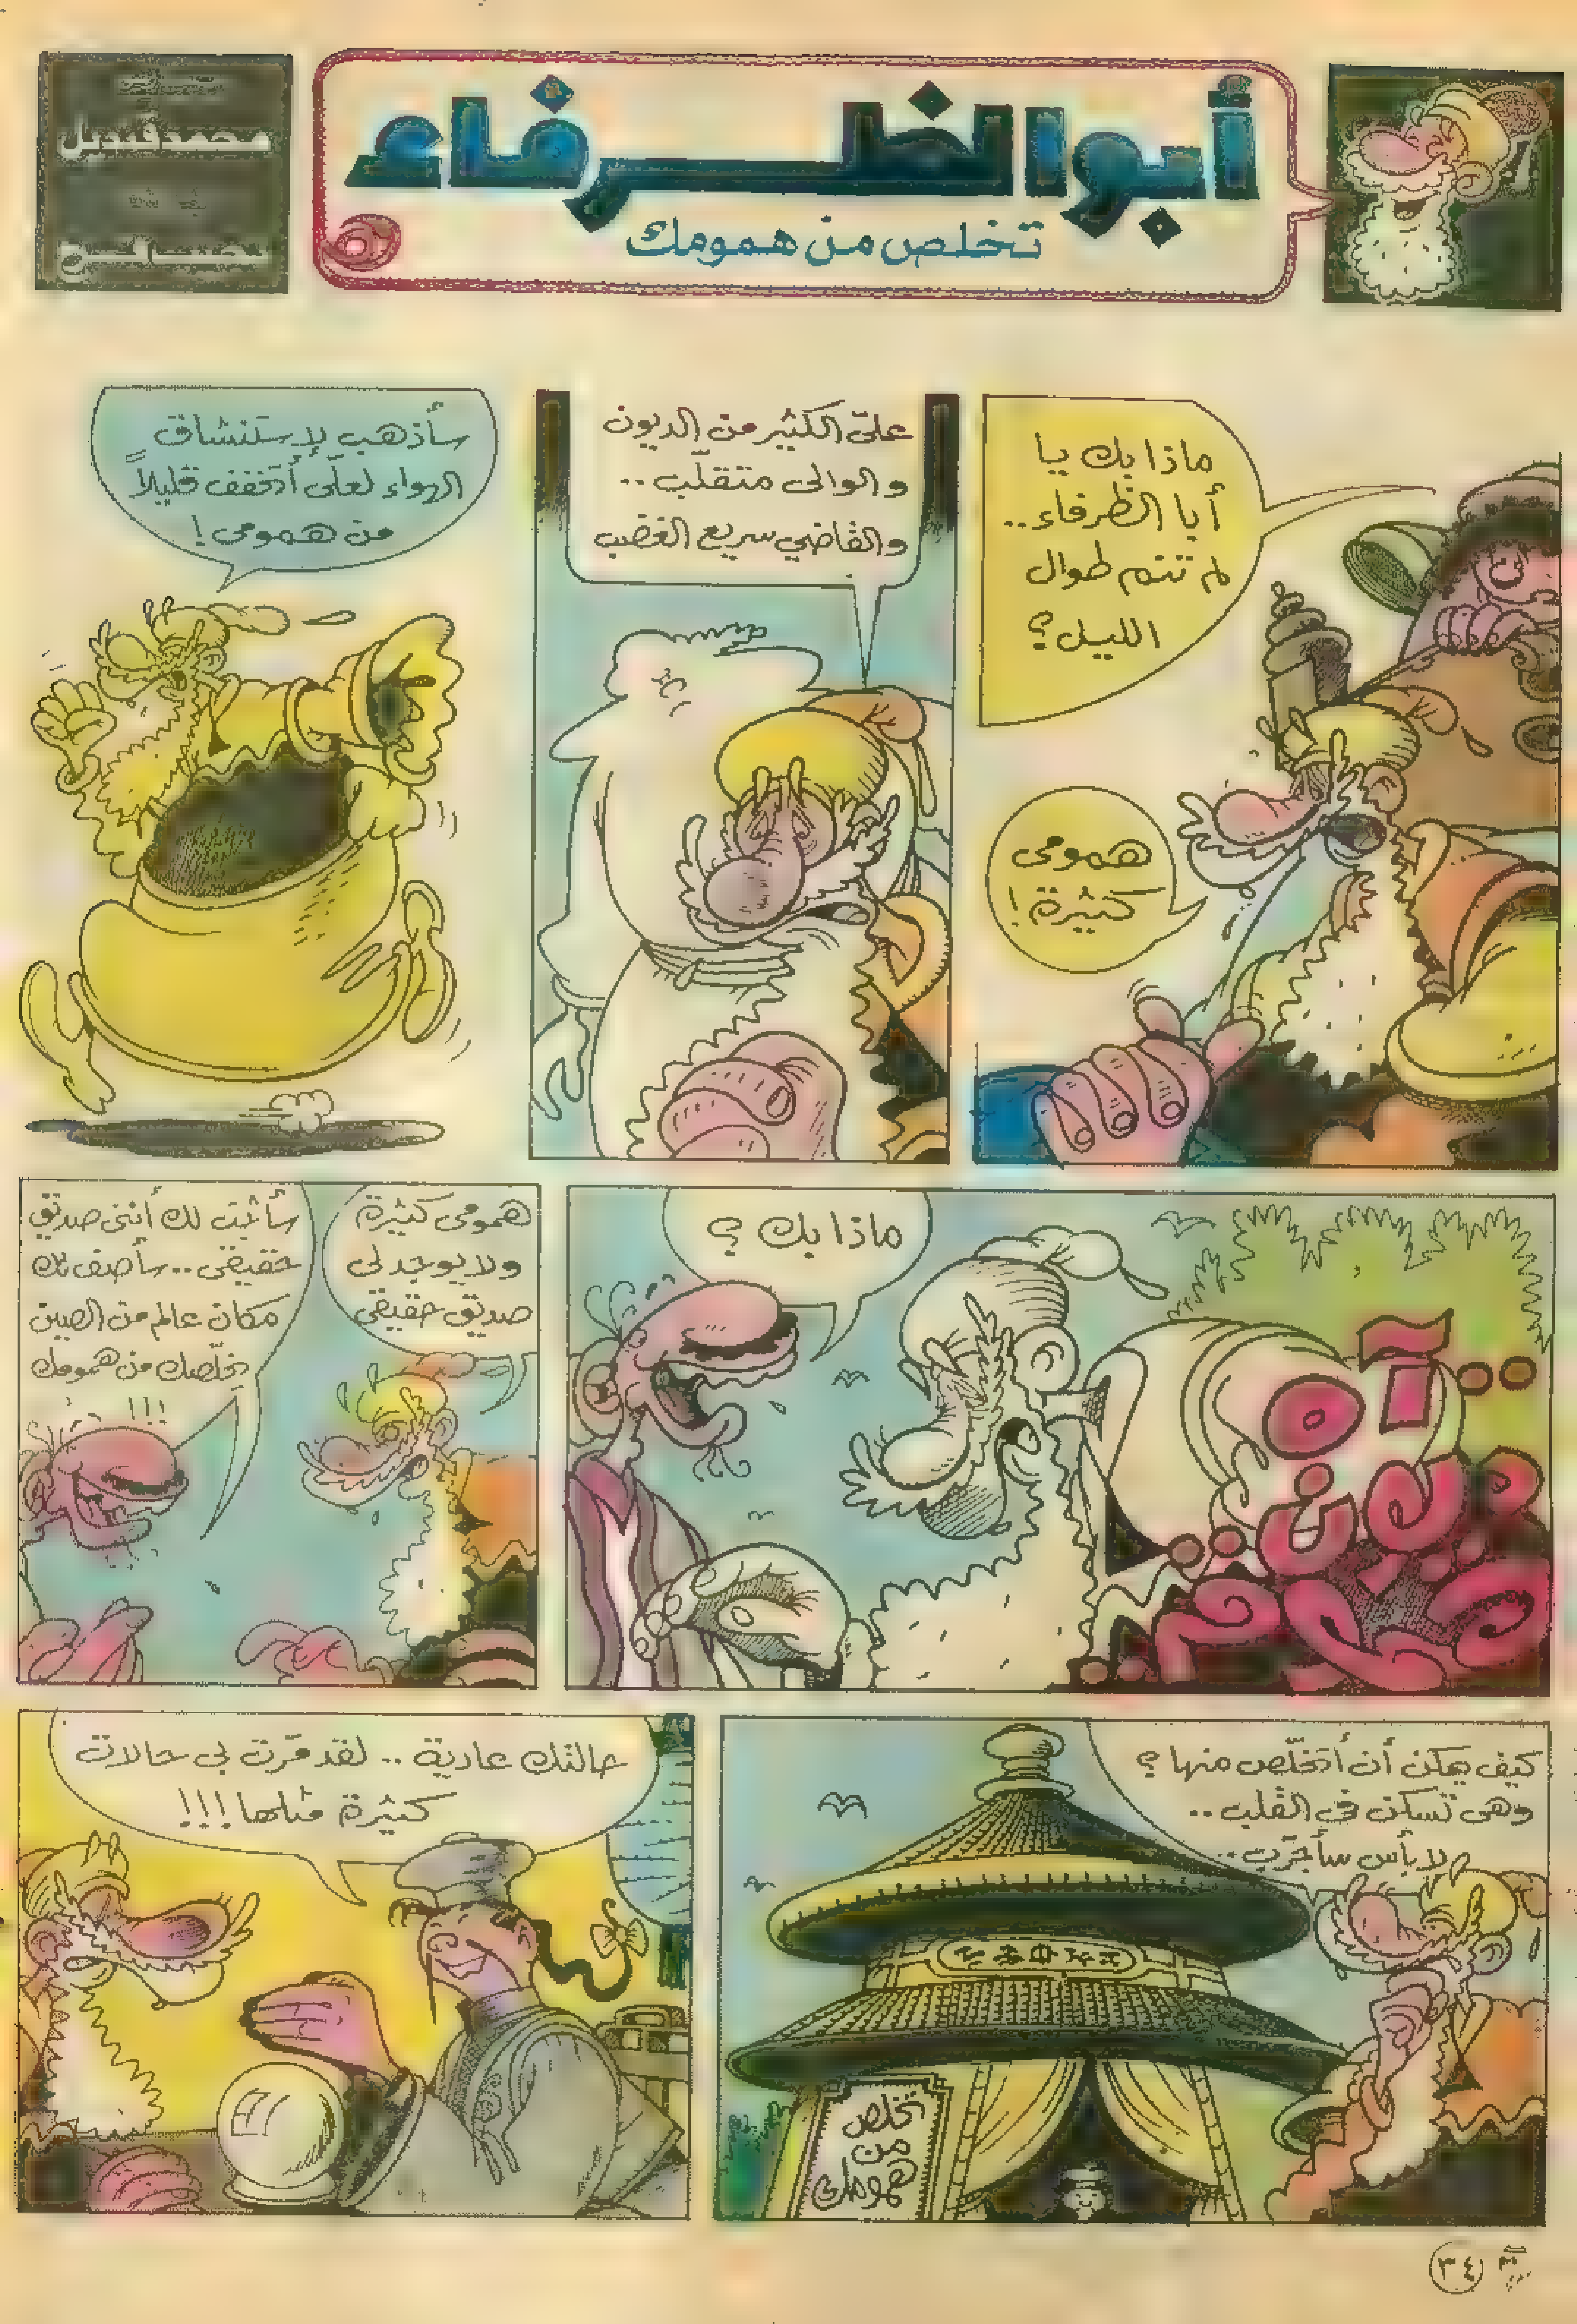 أبوالظرفاء
تخلص من همومك
محمد قنديل
ماذا بك يا
أبا الظرفاء..
لم تنم طوال
الليل؟
همومى
كثيرة!
علىّ الكثير من الديون
والوالى متقلّب..
والقاضي سريع الغضب
سأذهب لإستنشاق
الهواء لعلّى أتخفف قليلاً
من همومى!
آه..
من..
همومى
ماذا بك؟
همومى كثيرة
ولا يوجد لى
صديق حقيقى
سأثبت لك أننى صديق
حقيقى.. سأصف لك
مكان عالم من الصين
يخلّصك من همومك
!!!
كيف يمكن أن أتخلّص منها؟
وهى تسكن فى القلب..
لا بأس سأجرّب..
تخلص
من
همومك
حالتك عادية.. لقد مرّت بى حالات
كثيرة مثلها!!!
٣٤